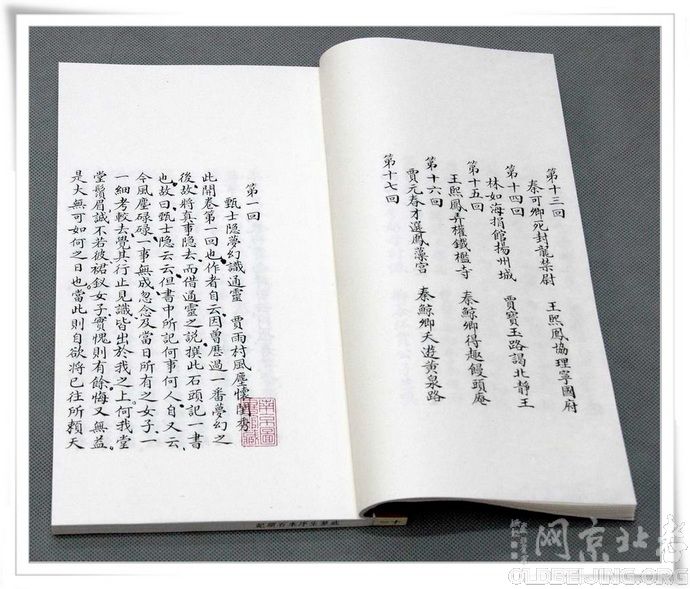 第十三回
秦可卿死封龍禁尉 王熙鳳協理寧國府
第十四回
林如海捐館揚州城 賈寶玉路謁北靜王
第十五回
王熙鳳弄權鐵檻寺 秦鯨卿得趣饅頭庵
第十六回
賈元春才選鳳藻宮 秦鯨卿夭逝黃泉路
第十七回
第一回
甄士隐夢幻識通靈 賈雨村風塵懷閨秀
此開卷第一回也作者自云因曾歷過一番夢幻之
後故將真事隐去而借通靈之說撰此石頭記一書
也故曰甄士隐云云但書中所記何事何人自又云
今風塵碌碌一事無成忽念及當日所有之女子一
一細考較去覺其行止見識皆出於我之上何我堂
堂鬚眉誠不若彼裙釵女子實愧則有餘悔又無益
是大無可如何之日也當此則自欲將已往所賴天
戚蓼生序本石頭記
老北京网
OLDBEIJING.ORG